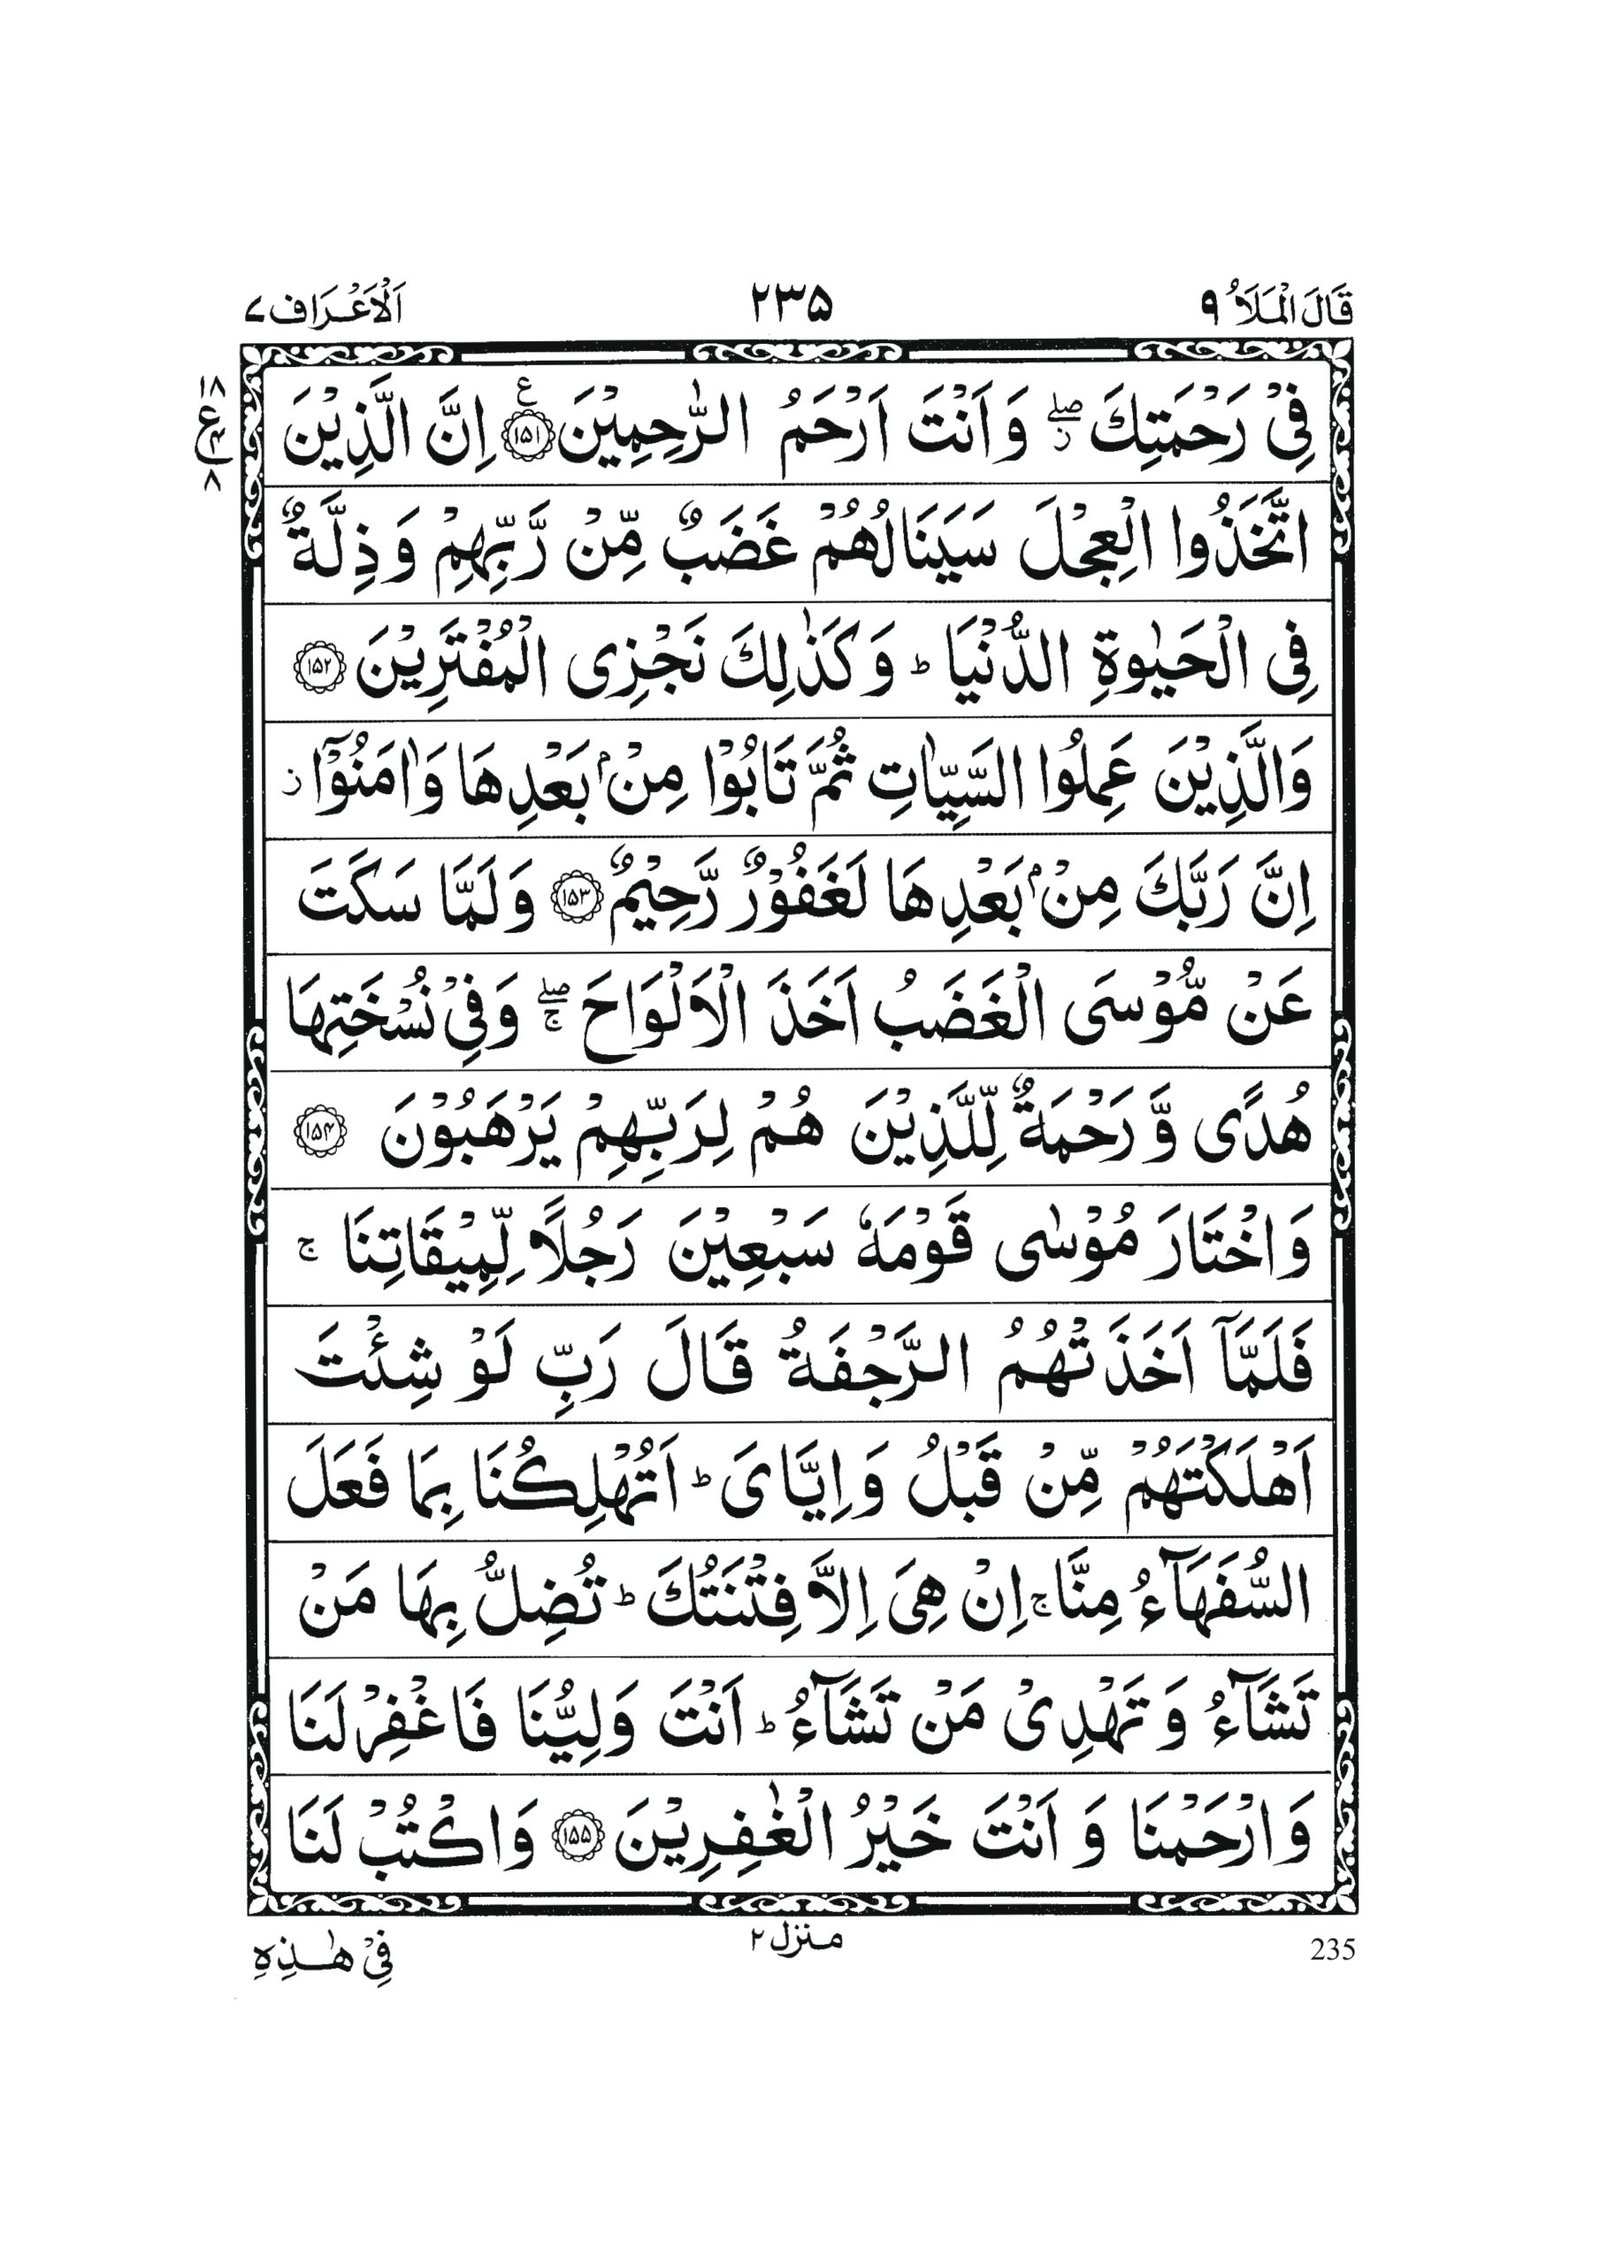 قَالَ الْمَلَاُ ٩ ٢٣٥ اَلْاَعْرَاف ٧
فِیْ رَحْمَتِكَ ۖز وَ اَنْتَ اَرْحَمُ الرّٰحِمِیْنَ ع ﴿۱۵۱﴾ اِنَّ الَّذِیْنَ
۱۸ ع ۸
اتَّخَذُوا الْعِجْلَ سَیَنَالُهُمْ غَضَبٌ مِّنْ رَّبِّهِمْ وَ ذِلَّةٌ
فِی الْحَیٰوةِ الدُّنْیَا ؕ وَ كَذٰلِكَ نَجْزِی الْمُفْتَرِیْنَ ﴿۱۵۲﴾
وَالَّذِیْنَ عَمِلُوا السَّیِّاٰتِ ثُمَّ تَابُوْا مِنْۢ بَعْدِهَا وَاٰمَنُوْۤا ز
اِنَّ رَبَّكَ مِنْۢ بَعْدِهَا لَغَفُوْرٌ رَّحِیْمٌ ﴿۱۵۳﴾ وَ لَمَّا سَكَتَ
عَنْ مُّوْسَی الْغَضَبُ اَخَذَ الْاَلْوَاحَ ۖۚ وَ فِیْ نُسْخَتِهَا
هُدًی وَّ رَحْمَةٌ لِّلَّذِیْنَ هُمْ لِرَبِّهِمْ یَرْهَبُوْنَ ﴿۱۵۴﴾
وَ اخْتَارَ مُوْسٰی قَوْمَهٗ سَبْعِیْنَ رَجُلًا لِّمِیْقَاتِنَا ۚ
فَلَمَّاۤ اَخَذَتْهُمُ الرَّجْفَةُ قَالَ رَبِّ لَوْ شِئْتَ
اَهْلَكْتَهُمْ مِّنْ قَبْلُ وَ اِیَّایَ ؕ اَتُهْلِكُنَا بِمَا فَعَلَ
السُّفَهَآءُ مِنَّا ۚ اِنْ هِیَ اِلَّا فِتْنَتُكَ ؕ تُضِلُّ بِهَا مَنْ
تَشَآءُ وَ تَهْدِیْ مَنْ تَشَآءُ ؕ اَنْتَ وَلِیُّنَا فَاغْفِرْ لَنَا
وَ ارْحَمْنَا وَ اَنْتَ خَیْرُ الْغٰفِرِیْنَ ﴿۱۵۵﴾ وَ اكْتُبْ لَنَا
235 منزل ۲ فِیْ هٰذِهِ